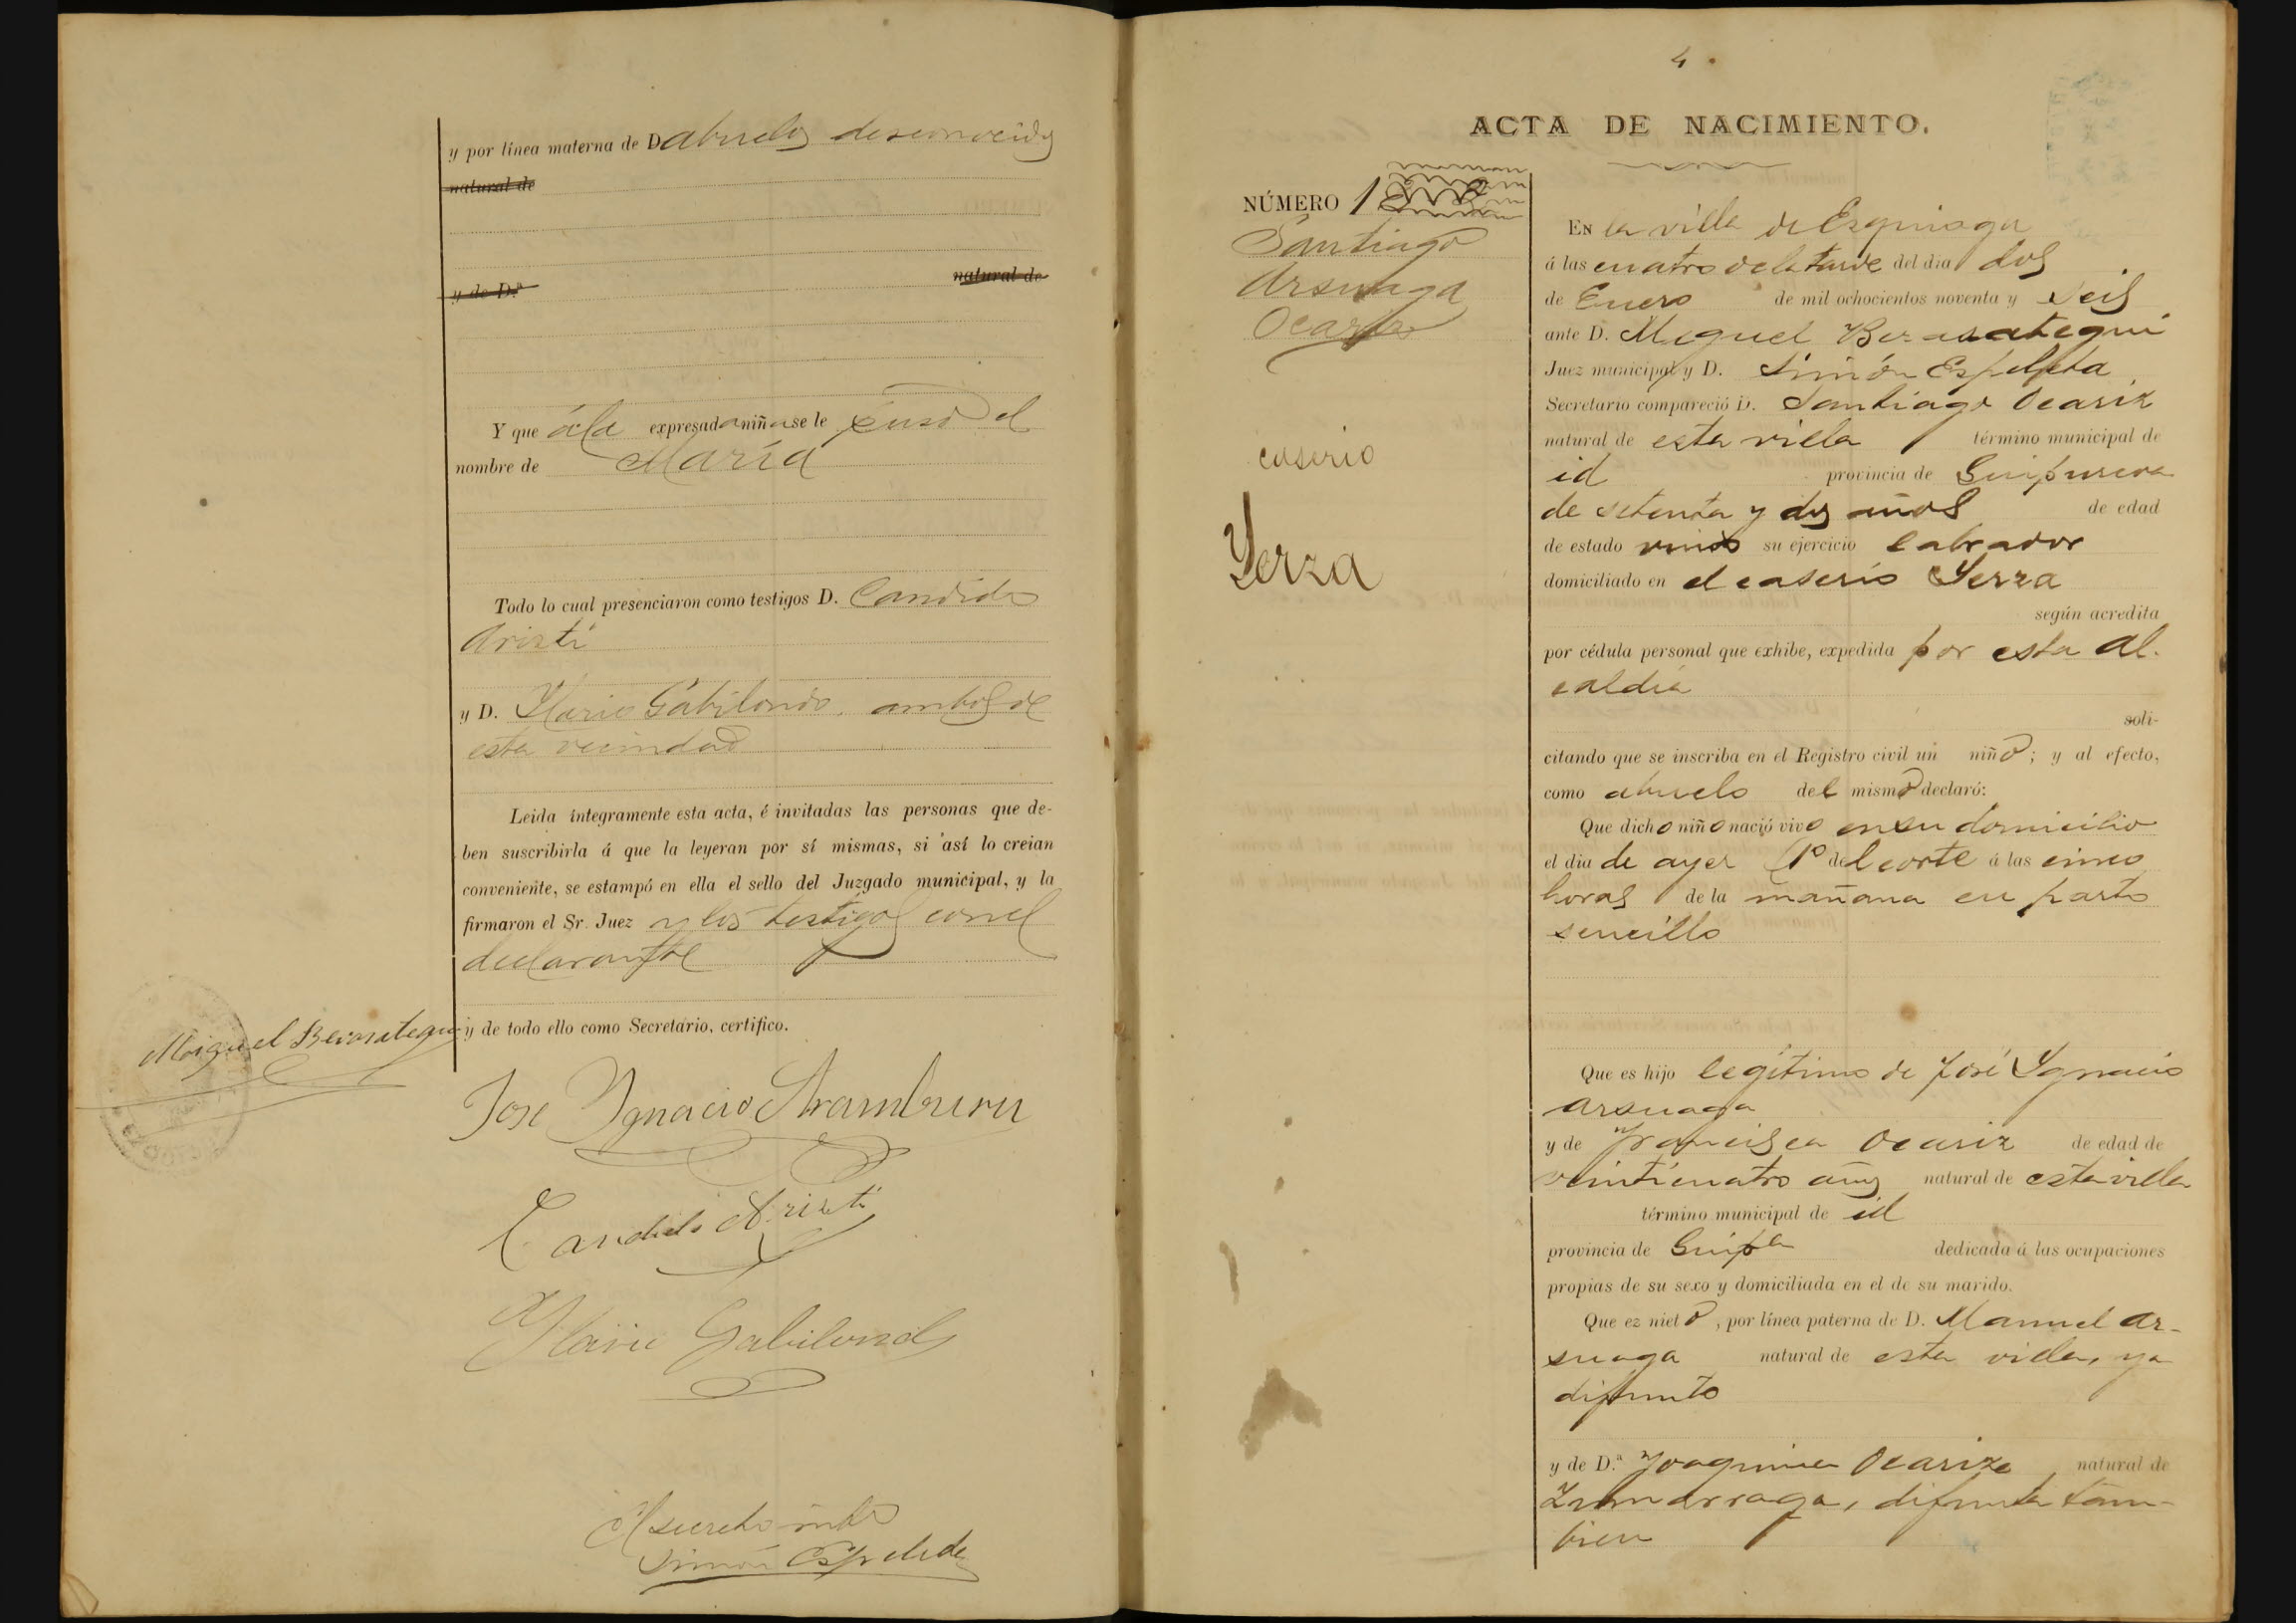 y por línea materna de D abuelos desconocidos
natural de
natural de
y de D.ª
Y que á la expresada niña se le puso el
nombre de María
Todo lo cual presenciaron como testigos D. Candido
Arizti
y D. Ylario Gabilondo, ambos de
esta vecindad
Leida íntegramente esta acta, é invitadas las personas que de-
ben suscribirla á que la leyeran por sí mismas, si así lo creian
conveniente, se estampó en ella el sello del Juzgado municipal, y la
firmaron el Sr. Juez y los testigos con el
declarante
y de todo ello como Secretario, certifico.
Miguel Berasategui
Jose Ygnacio Aramburu
Candido Arizti
Ylario Gabilondo
El secreto
Simón Espeleta
4
ACTA DE NACIMIENTO.
NÚMERO 1
Santiago
Arsuaga
Ocariz
caserio
Yerza
EN la villa de Ezquioga
á las cuatro de la tarde del dia dos
de Enero de mil ochocientos noventa y seis
ante D. Miguel Berasategui
Juez municipal y D. Simón Espeleta
Secretario compareció D. Santiago Ocariz
natural de esta villa término municipal de
id provincia de Guipuzcoa
de setenta y dos años de edad
de estado viudo su ejercicio labrador
domiciliado en el caserio Yerza
según acredita
por cédula personal que exhibe, expedida por esta Al-
caldia
soli-
citando que se inscriba en el Registro civil un niño; y al efecto,
como abuelo del mismo declaró:
Que dicho niño nació vivo en su domicilio
el dia de ayer 1º del corte á las cinco
horas de la mañana en parto
sencillo
Que es hijo legítimo de José Ygnacio
Arsuaga
y de Francisca Ocariz de edad de
veinticuatro años natural de esta villa
término municipal de id
provincia de Guipª dedicada á las ocupaciones
propias de su sexo y domiciliada en el de su marido.
Que ez nieto, por línea paterna de D. Manuel Ar-
suaga natural de esta villa, ya
difunto
y de D.ª Joaquina Ocariz natural de
Zumarraga, difunta tam-
bien